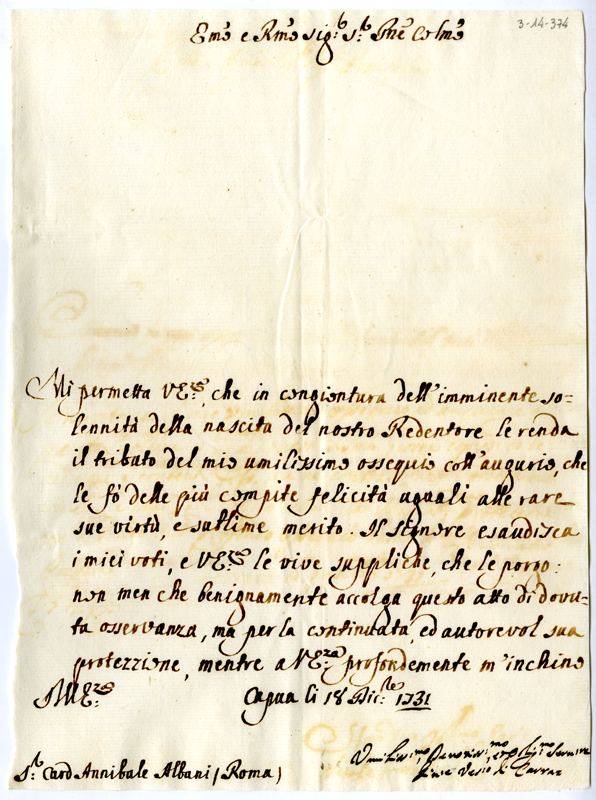 3-14-374
Emo e Rmo sig.r s.r Pne Colmo
Mi permetta VEza, che in congiontura dell'imminente so=
lennità della nascita del nostro Redentore le renda
il tributo del mio umilissimo ossequio coll'augurio, che
le fò delle più compite felicità uguali alle rare
sue virtù, e sublime merito. Il Signore esaudisca
i miei voti, e VEza le vive suppliche, che le porgo:
non men che benignamente accolga questo atto di dovu=
ta osservanza, ma per la continuata, ed autorevol sua
protezzione, mentre a VEza profondemente m'inchino
Capua li 18 Dic.re 1731
Umiliss.mo Devotis.mo
s.r Card Annibale Albani (Roma)